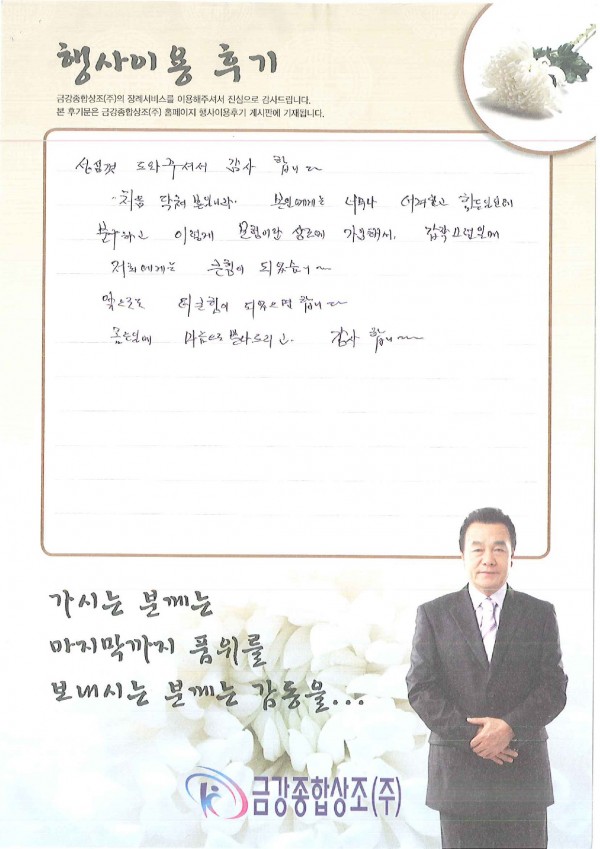 행사이용 후기
금강종합상조(주)의 장례서비스를 이용해주셔서 진심으로 감사드립니다.
본 후기문은 금강종합상조(주) 홈페이지 행사이용후기 게시판에 기재됩니다.
성심껏 도와주셔서 감사 합니다
처음 닥쳐 본일이라. 본인에게는 너무나
이렇게 보험이란 상조에 가입해서.
저희에게는 큰힘이 되었습니다
앞으로도 더큰힘이 되었으면 합니다
감사 합니다
가시는 분께는
마지막까지 품위를
보내시는 분께는 감동을...
금강종합상조(주)